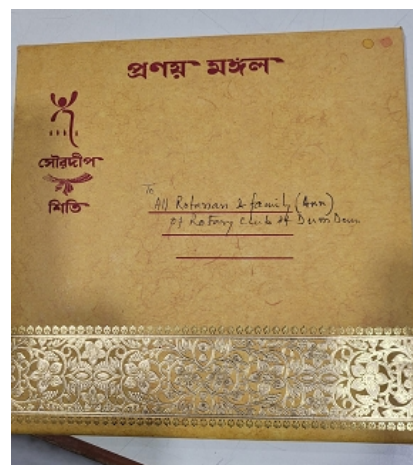 প্রণয় মঙ্গল
সৌরদীপ
শিতি
To
All Rotarian & family (Ann)
of Rotary Club of Dum Dum